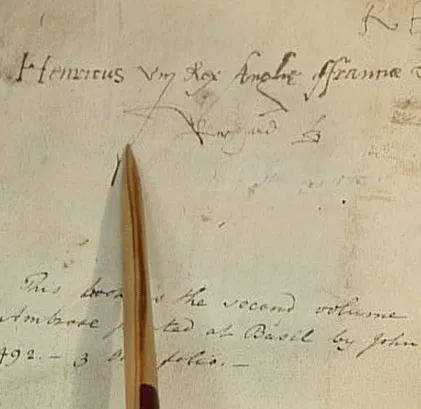 R
Henricus viij Rex Anglie ffrancie
This book is the second volume
Ambrose printed at Basil by John
492. – 3 folio. –